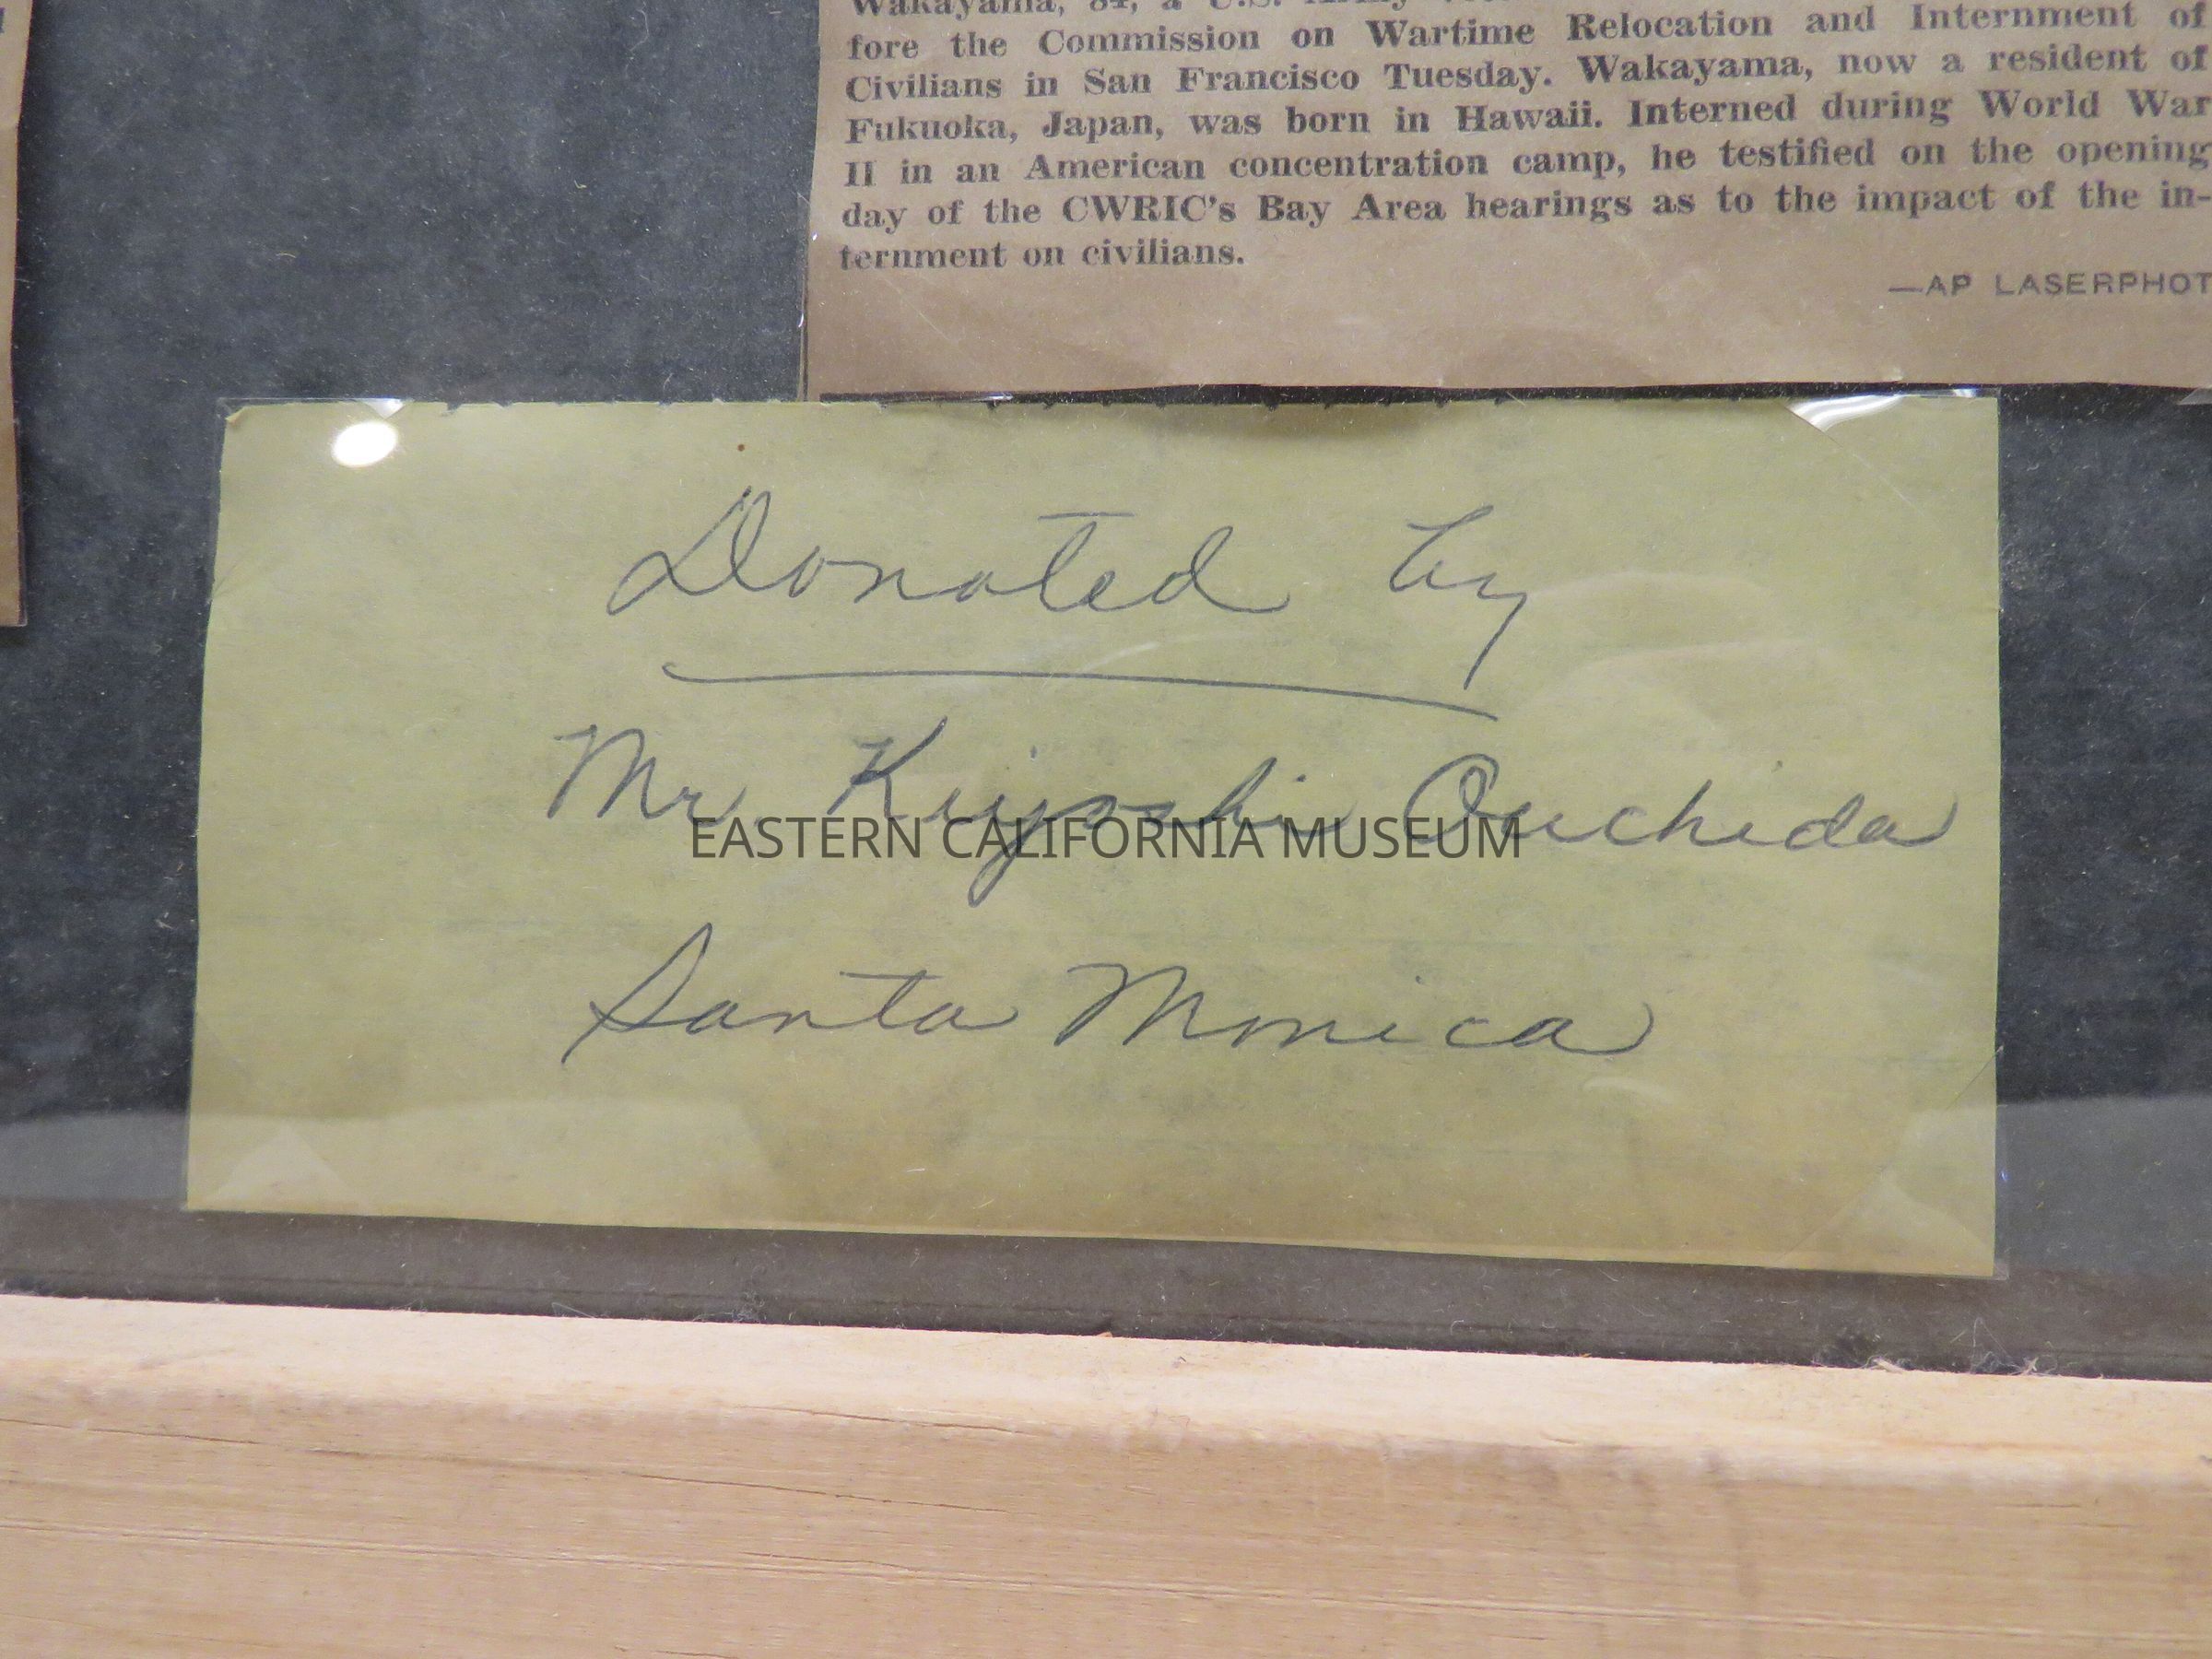 Wakayama, 84, a U.S. Army
fore the Commission on Wartime Relocation and Internment of
Civilians in San Francisco Tuesday. Wakayama, now a resident of
Fukuoka, Japan, was born in Hawaii. Interned during World War
II in an American concentration camp, he testified on the opening
day of the CWRIC's Bay Area hearings as to the impact of the in-
ternment on civilians.
—AP LASERPHOT
Donated by
Mr Kiyoshi Ouchida
EASTERN CALIFORNIA MUSEUM
Santa Monica